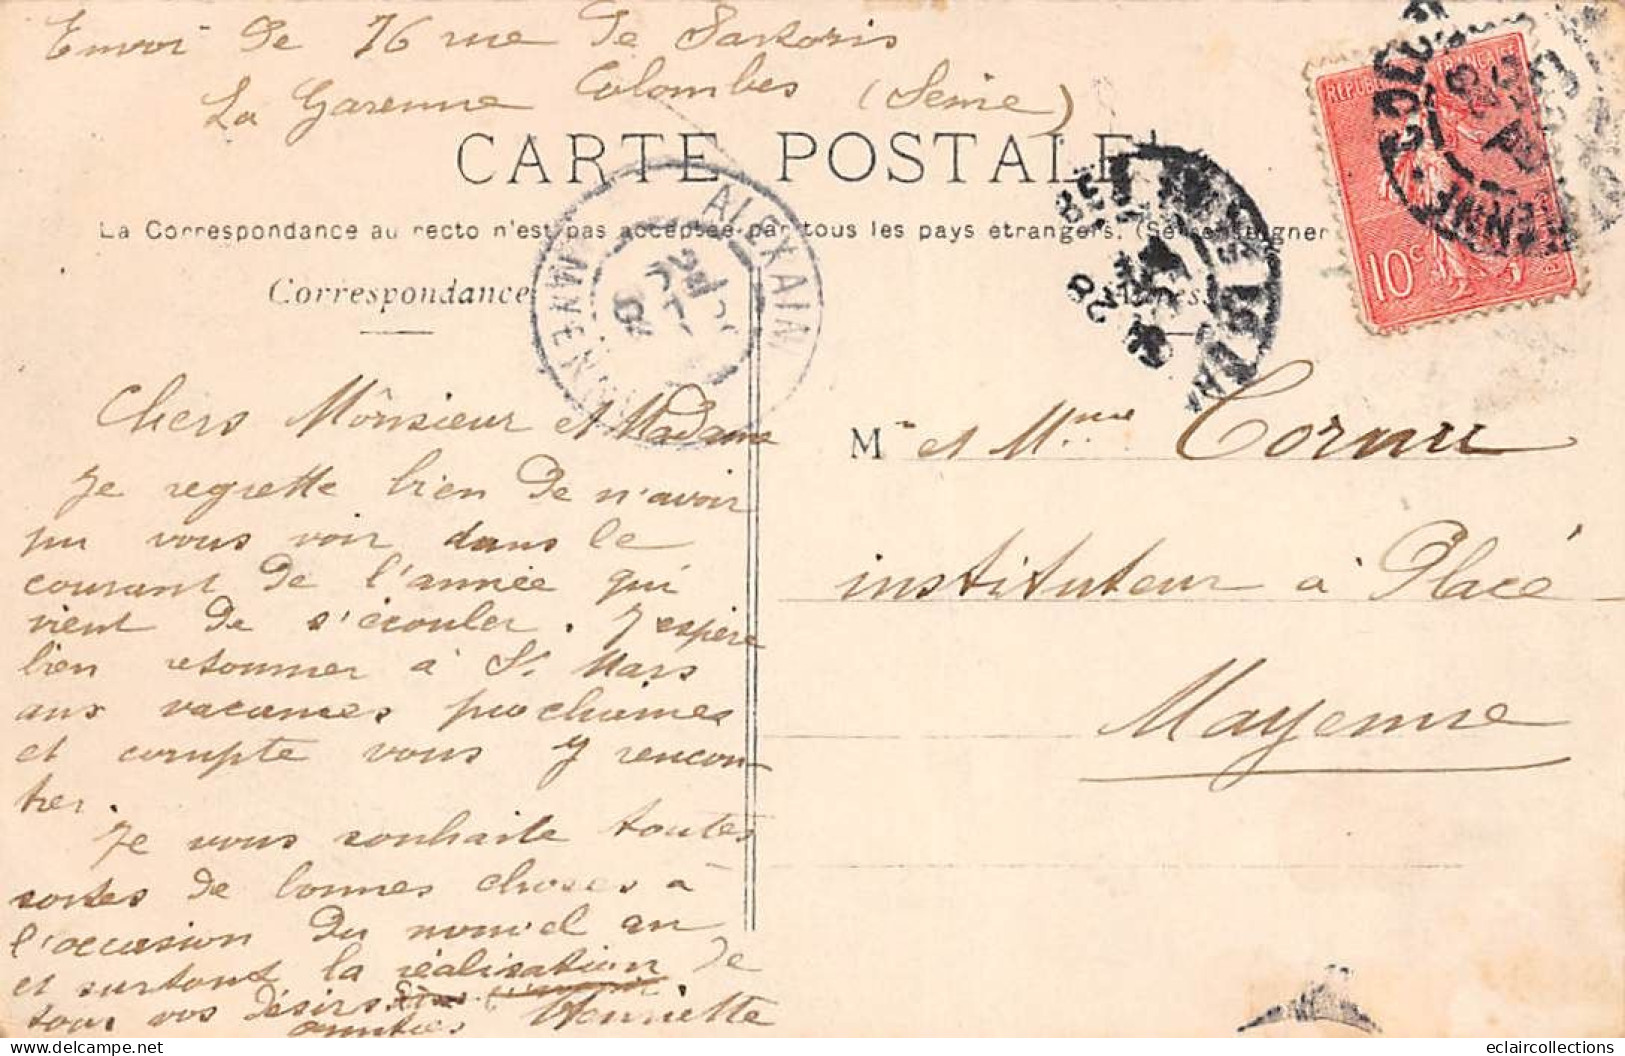 Envoi de 76 rue de Sartoris
La Garenne Colombes (Seine)
CARTE POSTALE
La Correspondance au recto n'est pas acceptée par tous les pays étrangers. (Se renseigner
Correspondance
RÉPUBLIQUE FRANÇAISE
10c
ALEXAIN
MAYENNE
Chers Monsieur et Madame
Je regrette bien de n'avoir
pu vous voir dans le
courant de l'année qui
vient de s'écouler. J'espère
bien retourner à St Mars
aux vacances prochaines
et compte vous y rencon-
trer.
Je vous souhaite toutes
sortes de bonnes choses à
l'occasion du nouvel an
et surtout la réalisation de
tous vos désirs.
amitiés Henriette
Mr et Mme Cornu
instituteur à Placé
Mayenne
eclaircollections